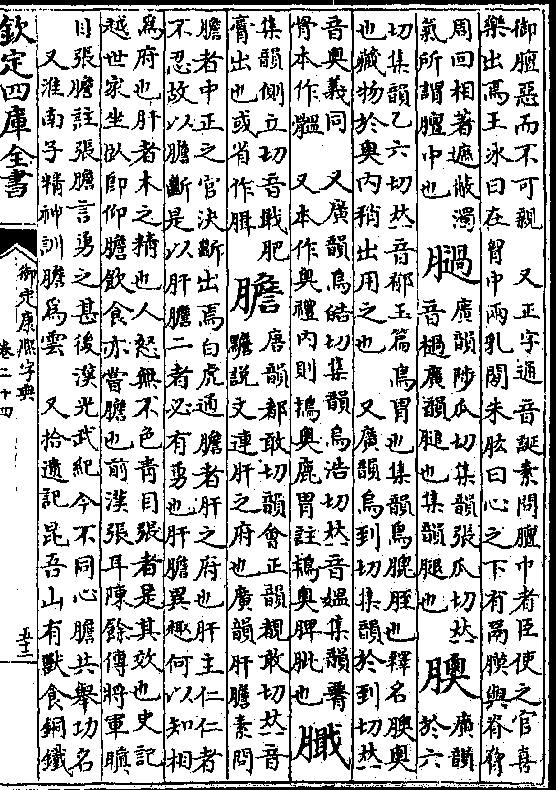 御膻惡而不可親　又正字通音誕素問膻中者臣使之官喜
樂出焉王冰曰在胷中兩乳閒朱肱曰心之下有鬲膜與脊脅
周回相著遮蔽濁
氣所謂膻中也
膼
廣韻陟瓜切集韻張瓜切𠀤
音檛廣韻腿也集韻腿也
腴
廣韻
於六
切集韻乙六切𠀤音郁玉篇鳥胃也集韻鳥膍胵也釋名腴奥
也藏物於奥内稍出用之也　又廣韻烏到切集韻於到切𠀤
音奥義同　又廣韻烏皓切集韻烏浩切𠀤音媪集韻臀
骨本作䯠　又本作奥禮内則鴇奥鹿胃註鴇奥脾肶也
膱
集韻側立切音戢肥
膏出也或省作腪
膽
唐韻都敢切韻會正韻覩敢切𠀤音
黵說文連肝之府也廣韻肝膽素問
膽者中正之官決斷出焉白虎通膽者肝之府也肝主仁仁者
不忍故以膽斷是以肝膽二者必有勇也肝膽異趣何以知相
爲府也肝者木之精也人怒無不色青目張者是其效也史記
越世家坐臥卽仰膽飲食亦嘗膽也前漢張耳陳餘傳將軍瞋
目張膽註張膽言勇之甚後漢光武紀今不同心膽共舉功名
又淮南子精神訓膽爲雲　又拾遺記昆吾山有獸食銅鐵
欽定四庫全書
御定康熙字典
卷二十四
五十三